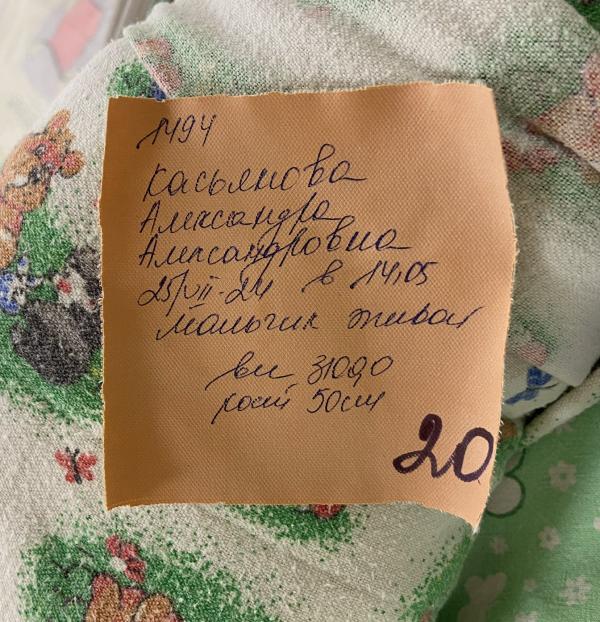 1494
Касьянова
Александра
Александровна
25/VII-24 в 14.05
мальчик живой
вес 3100,0
рост 50см
20